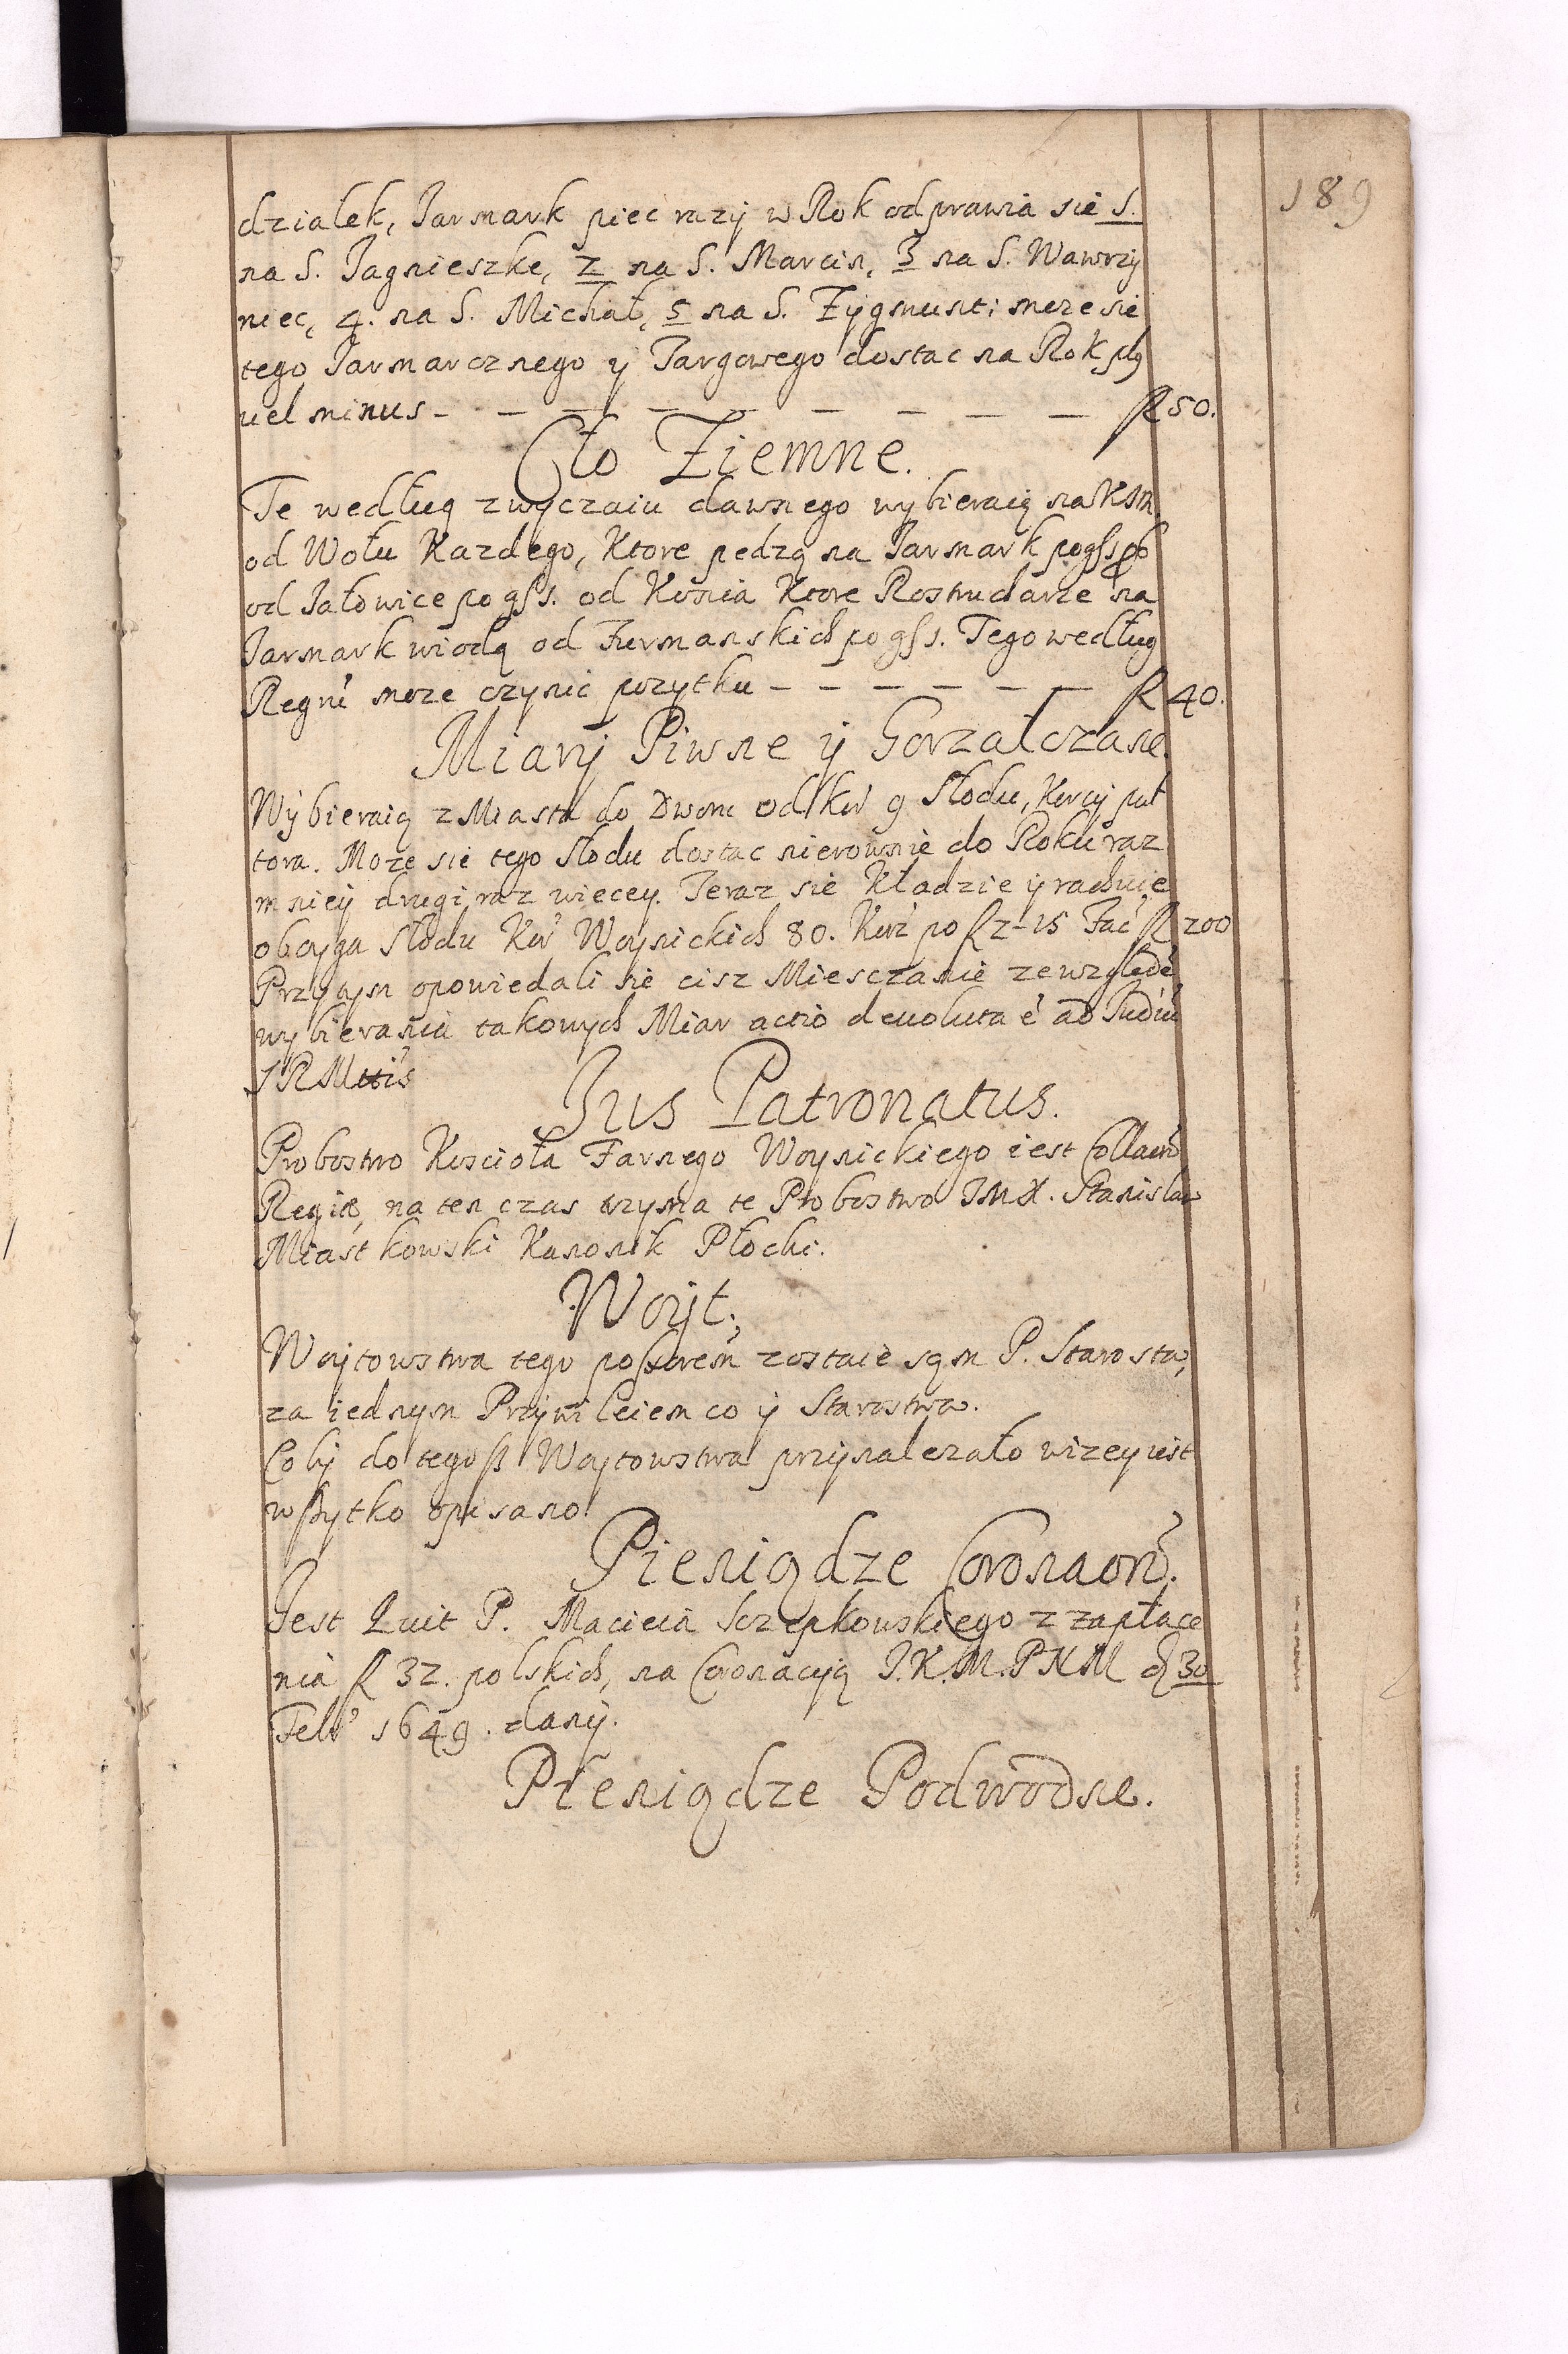 189
działek, Jarmark piec razy w Rok odprawia sie 1.
na S. Jagnieszke, 2 na S. Marcin, 3 na S. Wawrzy
niec, 4. na S. Michał, 5 na S. Zygmunt: moze sie
tego Jarmarcznego y Targowego dostac na Rok
uel minus - - - - - - - - - - fl 50.
Cło Ziemne.
Te według zwyczaiu dawnego wybieraią na
od Wołu Kazdego, Ktore pedzą na Jarmark po gss
od Jałowice po gss 1. od Konia Ktore Rostrucharze na
Jarmark wiodą od Furmanskich po gss 1. Tego według
Regni moze czynic pozytku - - - - - - fl 40.
Miary Piwne y Gorzałczane.
Wybieraią z Miasta do Dworu od Kor 9 Słodu, Korcy puł
tora. Moze sie tego Słodu dostac nierownie do Roku raz
mniey drugi raz wiecey. Teraz sie Kładzie y rachuie
oboyga Słodu Kor Woynickich 80. Kor po fl 2-15 Fac fl 200
Przytym opowiedali sie cisz Miesczanie ze wzglede
wybierania takowych Miar actio deuoluta e ad Iudiu
SRMttis
Jus Patronatus.
Probostwo Koscioła Farnego Woynickiego iest Collaon
Regiæ, na ten czas trzyma te Probostwo JMX. Stanisław
Miastkowski Kanonik Płocki.
Woyt.
Woytowstwa tego possorem zostaie sąm P. Starosta,
za iednym Przywileiem co y Starostwa.
Coby do tegoß Woytowstwa przynalezało wizey iest
wßytko opisano
Pieniądze Coronaon.
Jest Quit P. Macieia Sczepkowskiego z zapłace
nia fl 32. polskich, na Coronacyą J.K.M.PNM d 30
Febr 1649. dany.
Pieniądze Podwodne.